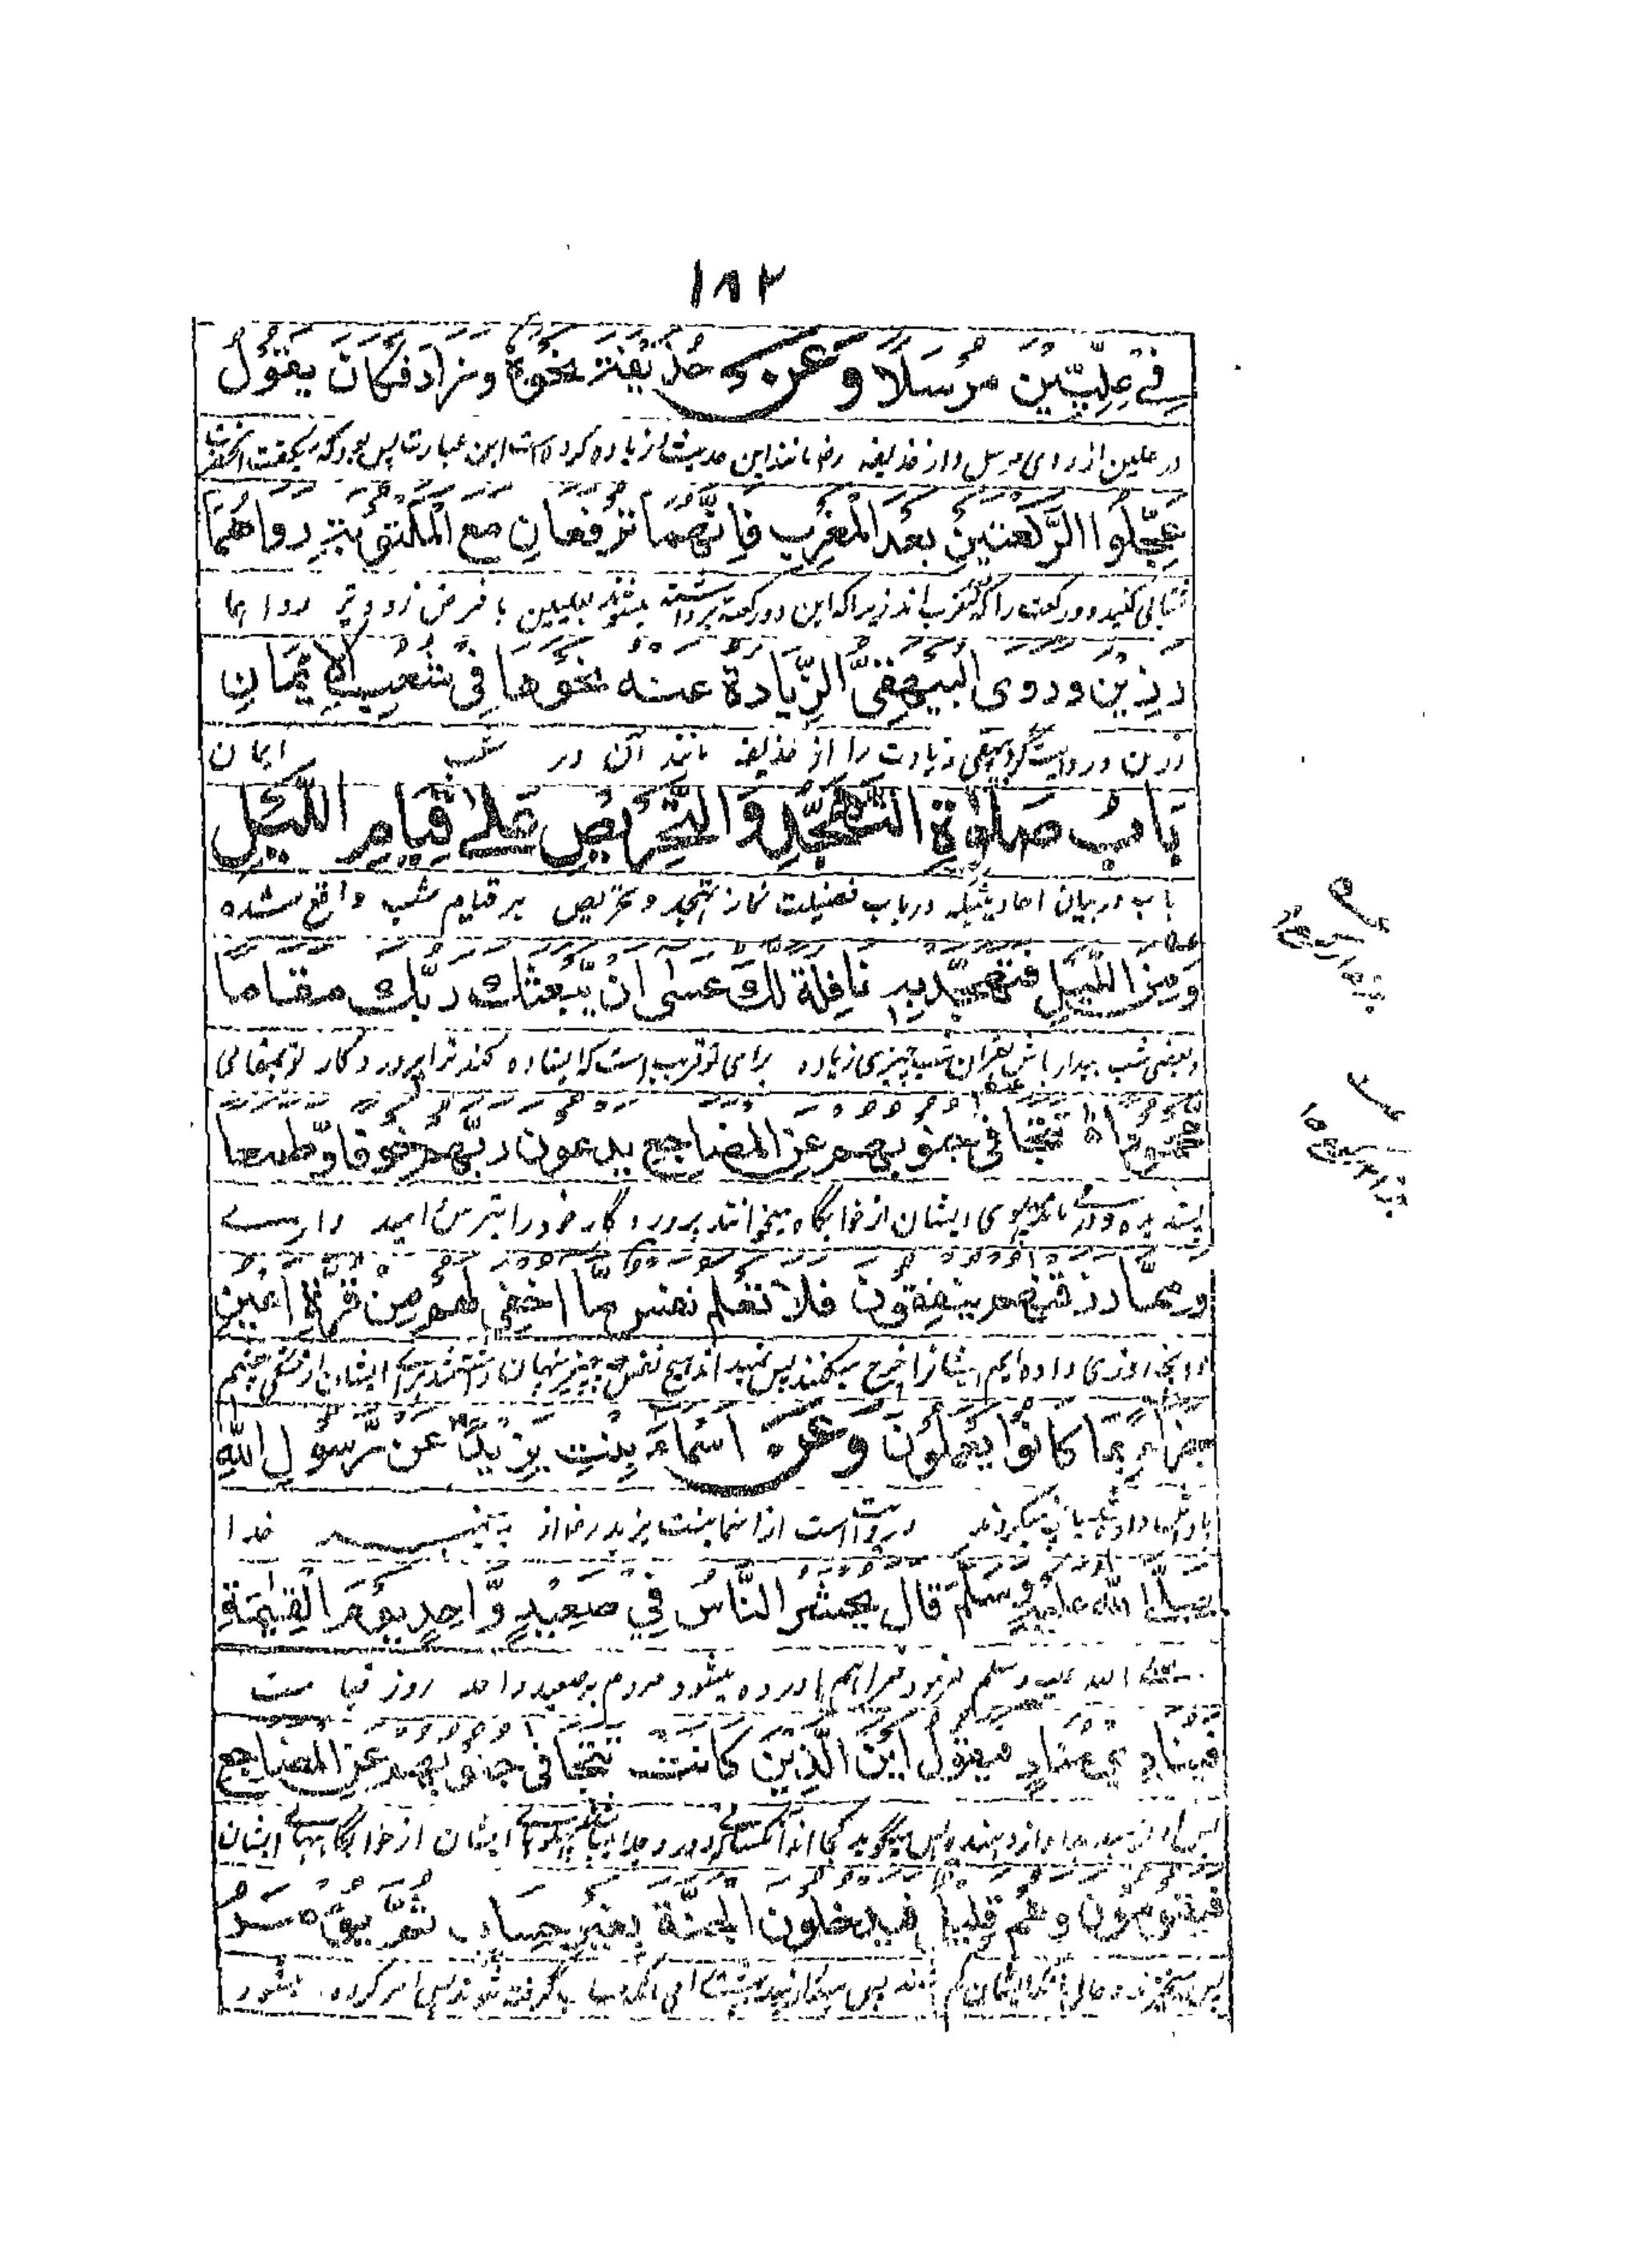 ١٨٢
فِي عِلِّيِّيْنَ مُرْسَلًا وَعَنْ حُذَيْفَةَ نَحْوَهُ وَزَادَ فَكَانَ يَقُوْلُ
در علیین از روی مرسل و از حذیفه رض مانند این حدیث زیاده کرده است این عبارت پس بود که میگفت آنحضرت
عَجِّلُوا الرَّكْعَتَيْنِ بَعْدَ الْمَغْرِبِ فَإِنَّهُمَا تُرْفَعَانِ مَعَ الْمَكْتُوْبَةِ رَوَاهُمَا
شتابی کنید دو رکعت را که بمغرب اند زیرا که این دو رکعت برداشته میشوند بعلیین با فرض زود تر روا هما
رَزِيْنٌ وَرَوَى الْبَيْهَقِيُّ الزِّيَادَةَ عَنْهُ نَحْوَهَا فِي شُعَبِ الْإِيْمَانِ
رزین و روایت کرد بیهقی زیادت را از حذیفه مانند آن در شعب ایمان
بَابُ صَلٰوةِ التَّهَجُّدِ وَالتَّحْرِيْصِ عَلٰى قِيَامِ اللَّيْلِ
باب در بیان احادیثیکه در باب فضیلت نماز تهجد و تحریص بر قیام شب واقع شده
وَمِنَ اللَّيْلِ فَتَهَجَّدْ بِهِ نَافِلَةً لَّكَ عَسٰى أَنْ يَّبْعَثَكَ رَبُّكَ مَقَامًا
و بعضی شب بیدار باش بقران شب چیزی زیاده برای تو قریب است که ایستاده کند ترا پروردگار تو بمقامی
مَّحْمُوْدًا تَتَجَافٰى جُنُوْبُهُمْ عَنِ الْمَضَاجِعِ يَدْعُوْنَ رَبَّهُمْ خَوْفًا وَّطَمَعًا
پسندیده دور میماند پهلوی ایشان از خوابگاه میخوانند پروردگار خود را بترس و امید واری
وَمِمَّا رَزَقْنٰهُمْ يُنْفِقُوْنَ فَلَا تَعْلَمُ نَفْسٌ مَّا أُخْفِيَ لَهُمْ مِّنْ قُرَّةِ أَعْيُنٍ
و از آنچه روزی داده ایم ایشانرا خرچ میکنند پس نمیداند هیچ نفس چه چیز پنهان داشته شد برای ایشان از خنکی چشم
جَزَاءً بِمَا كَانُوْا يَعْمَلُوْنَ وَعَنْ أَسْمَاءَ بِنْتِ يَزِيْدَ عَنْ رَّسُوْلِ اللّٰهِ
پاداش داده شد بآنچه میکردند و روایت است از اسما بنت یزید رض از پیغمبر خدا
صَلَّى اللّٰهُ عَلَيْهِ وَسَلَّمَ قَالَ يُحْشَرُ النَّاسُ فِي صَعِيْدٍ وَّاحِدٍ يَّوْمَ الْقِيٰمَةِ
صلی الله علیه وسلم فرمود فراهم آورده میشود مردم بر صعید واحد روز قیامت
فَيُنَادِي مُنَادٍ فَيَقُوْلُ أَيْنَ الَّذِيْنَ كَانَتْ تَتَجَافٰى جُنُوْبُهُمْ عَنِ الْمَضَاجِعِ
پس آواز میدهد آواز دهنده پس میگوید کجا اند آنکسانیکه دور و جدا پهلوهای ایشان از خوابگاههای ایشان
فَيَقُوْمُوْنَ وَهُمْ قَلِيْلٌ فَيَدْخُلُوْنَ الْجَنَّةَ بِغَيْرِ حِسَابٍ ثُمَّ يُؤْمَرُ
پس میخیزند و حال آنکه ایشان کم اند پس میدرآیند بهشت بی آنکه حساب گرفته شوند پس امر کرده میشود